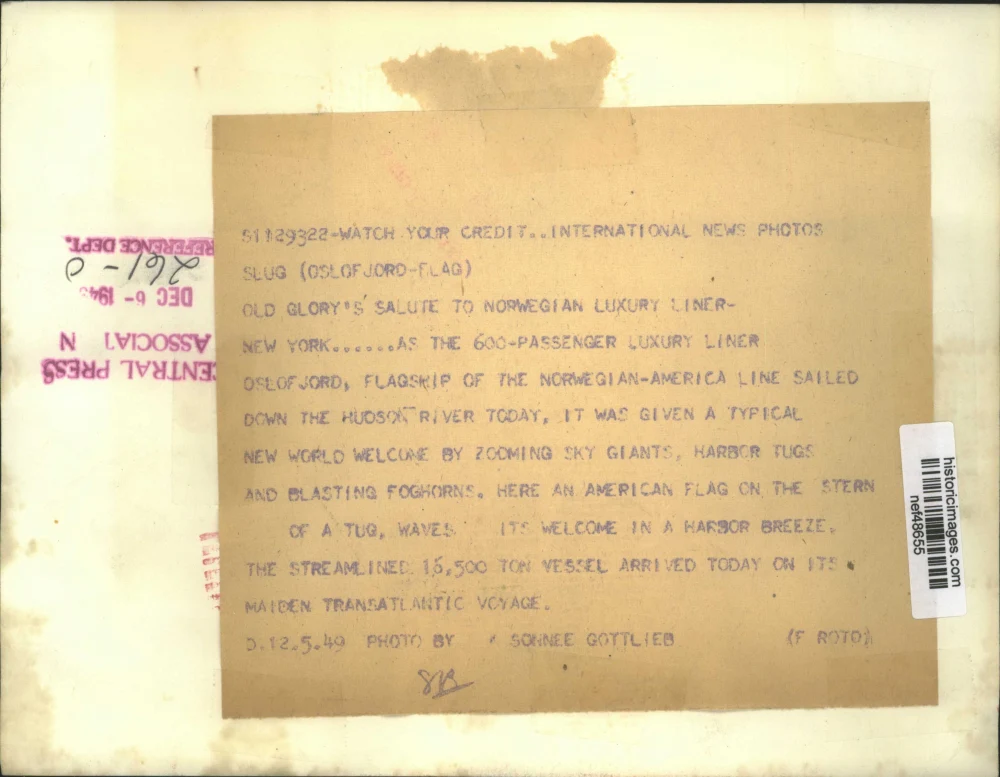 S1129322-WATCH YOUR CREDIT..INTERNATIONAL NEWS PHOTOS
SLUG (OSLOFJORD-FLAG)
OLD GLORY'S SALUTE TO NORWEGIAN LUXURY LINER-
NEW YORK......AS THE 600-PASSENGER LUXURY LINER
OSLOFJORD, FLAGSHIP OF THE NORWEGIAN-AMERICA LINE SAILED
DOWN THE HUDSON RIVER TODAY, IT WAS GIVEN A TYPICAL
NEW WORLD WELCOME BY ZOOMING SKY GIANTS, HARBOR TUGS
AND BLASTING FOGHORNS. HERE AN AMERICAN FLAG ON THE STERN
OF A TUG, WAVES ITS WELCOME IN A HARBOR BREEZE.
THE STREAMLINED 16,500 TON VESSEL ARRIVED TODAY ON ITS
MAIDEN TRANSATLANTIC VOYAGE.
D.12.5.49 PHOTO BY SONNEE GOTTLIEB (F ROTO)
CENTRAL PRESS
ASSOCIAT N
DEC 6- 194
261-0
REFERENCE DEPT.
historicimages.com
nef48655